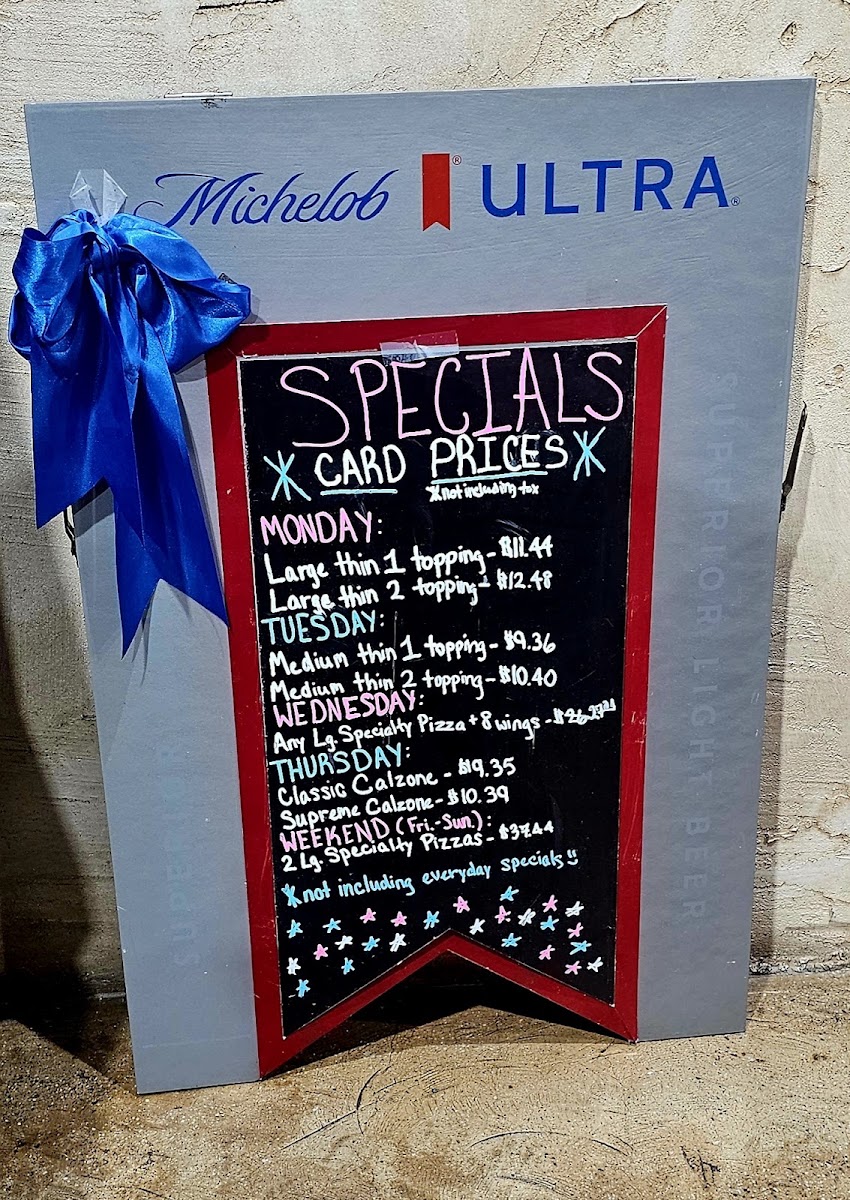 Michelob ® ULTRA®
SPECIALS
*CARD PRICES*
*not including tax
MONDAY:
Large thin 1 topping - $11.44
Large thin 2 topping - $12.48
TUESDAY:
Medium thin 1 topping - $9.36
Medium thin 2 topping - $10.40
WEDNESDAY:
Any Lg. Specialty Pizza + 8 wings -
THURSDAY:
Classic Calzone - $9.35
Supreme Calzone - $10.39
WEEKEND (Fri.-Sun.):
2 Lg. Specialty Pizzas - $37.44
*not including everyday specials
SUPERIOR LIGHT BEER
SUPERIOR